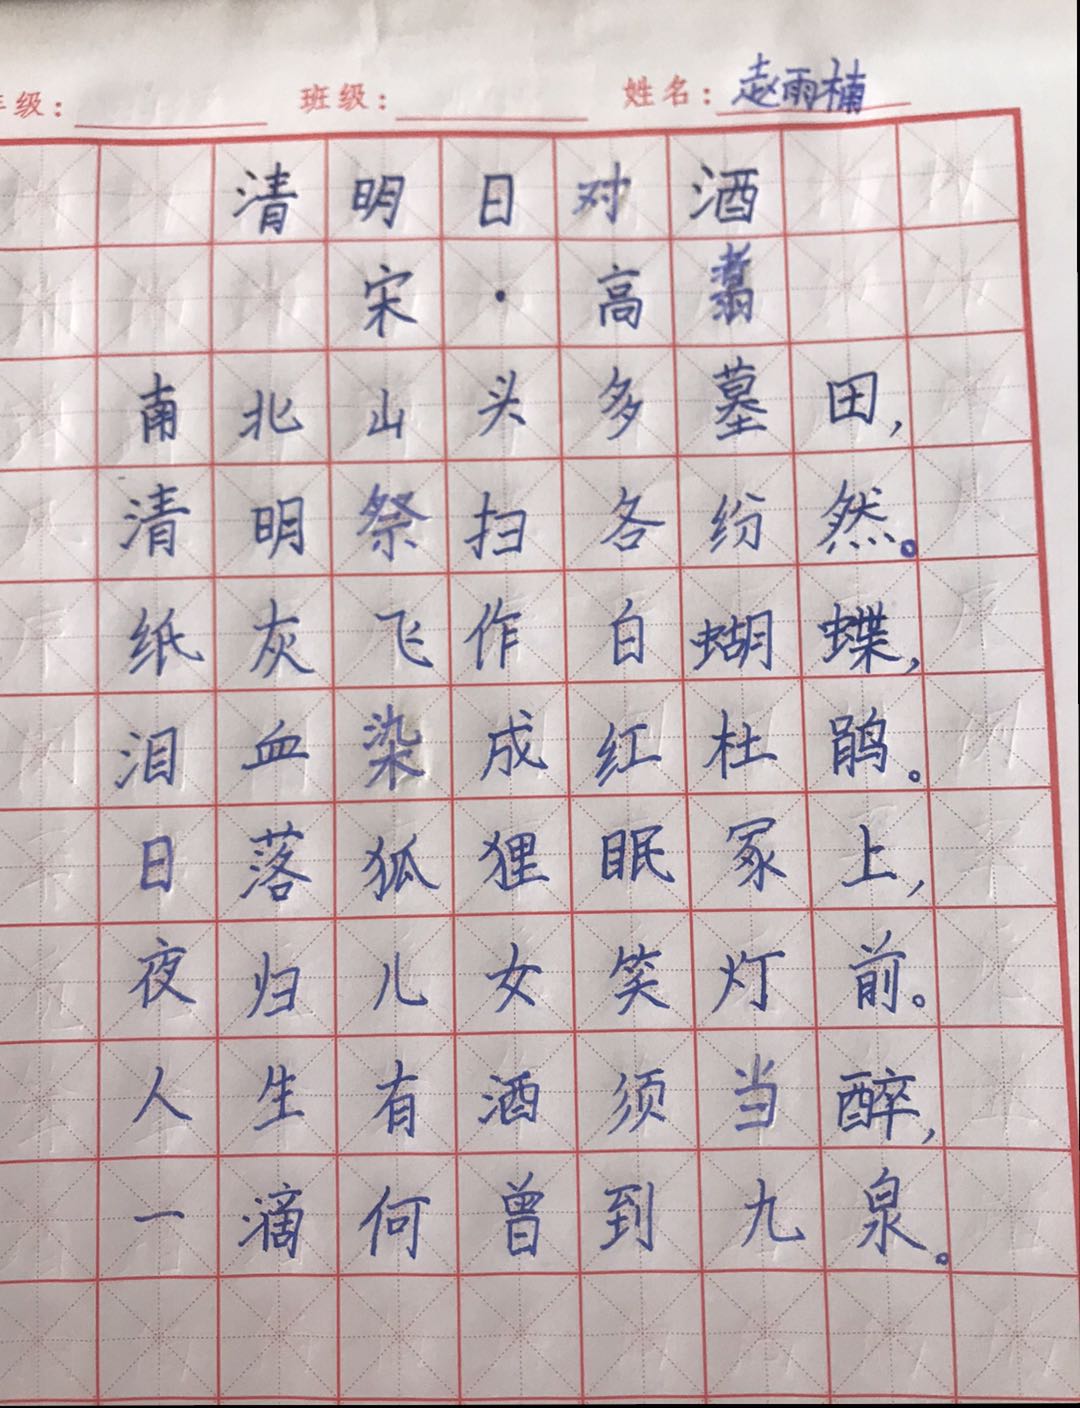 年级： 班级： 姓名：赵雨楠
清明日对酒
宋·高翥
南北山头多墓田，
清明祭扫各纷然。
纸灰飞作白蝴蝶，
泪血染成红杜鹃。
日落狐狸眠冢上，
夜归儿女笑灯前。
人生有酒须当醉，
一滴何曾到九泉。